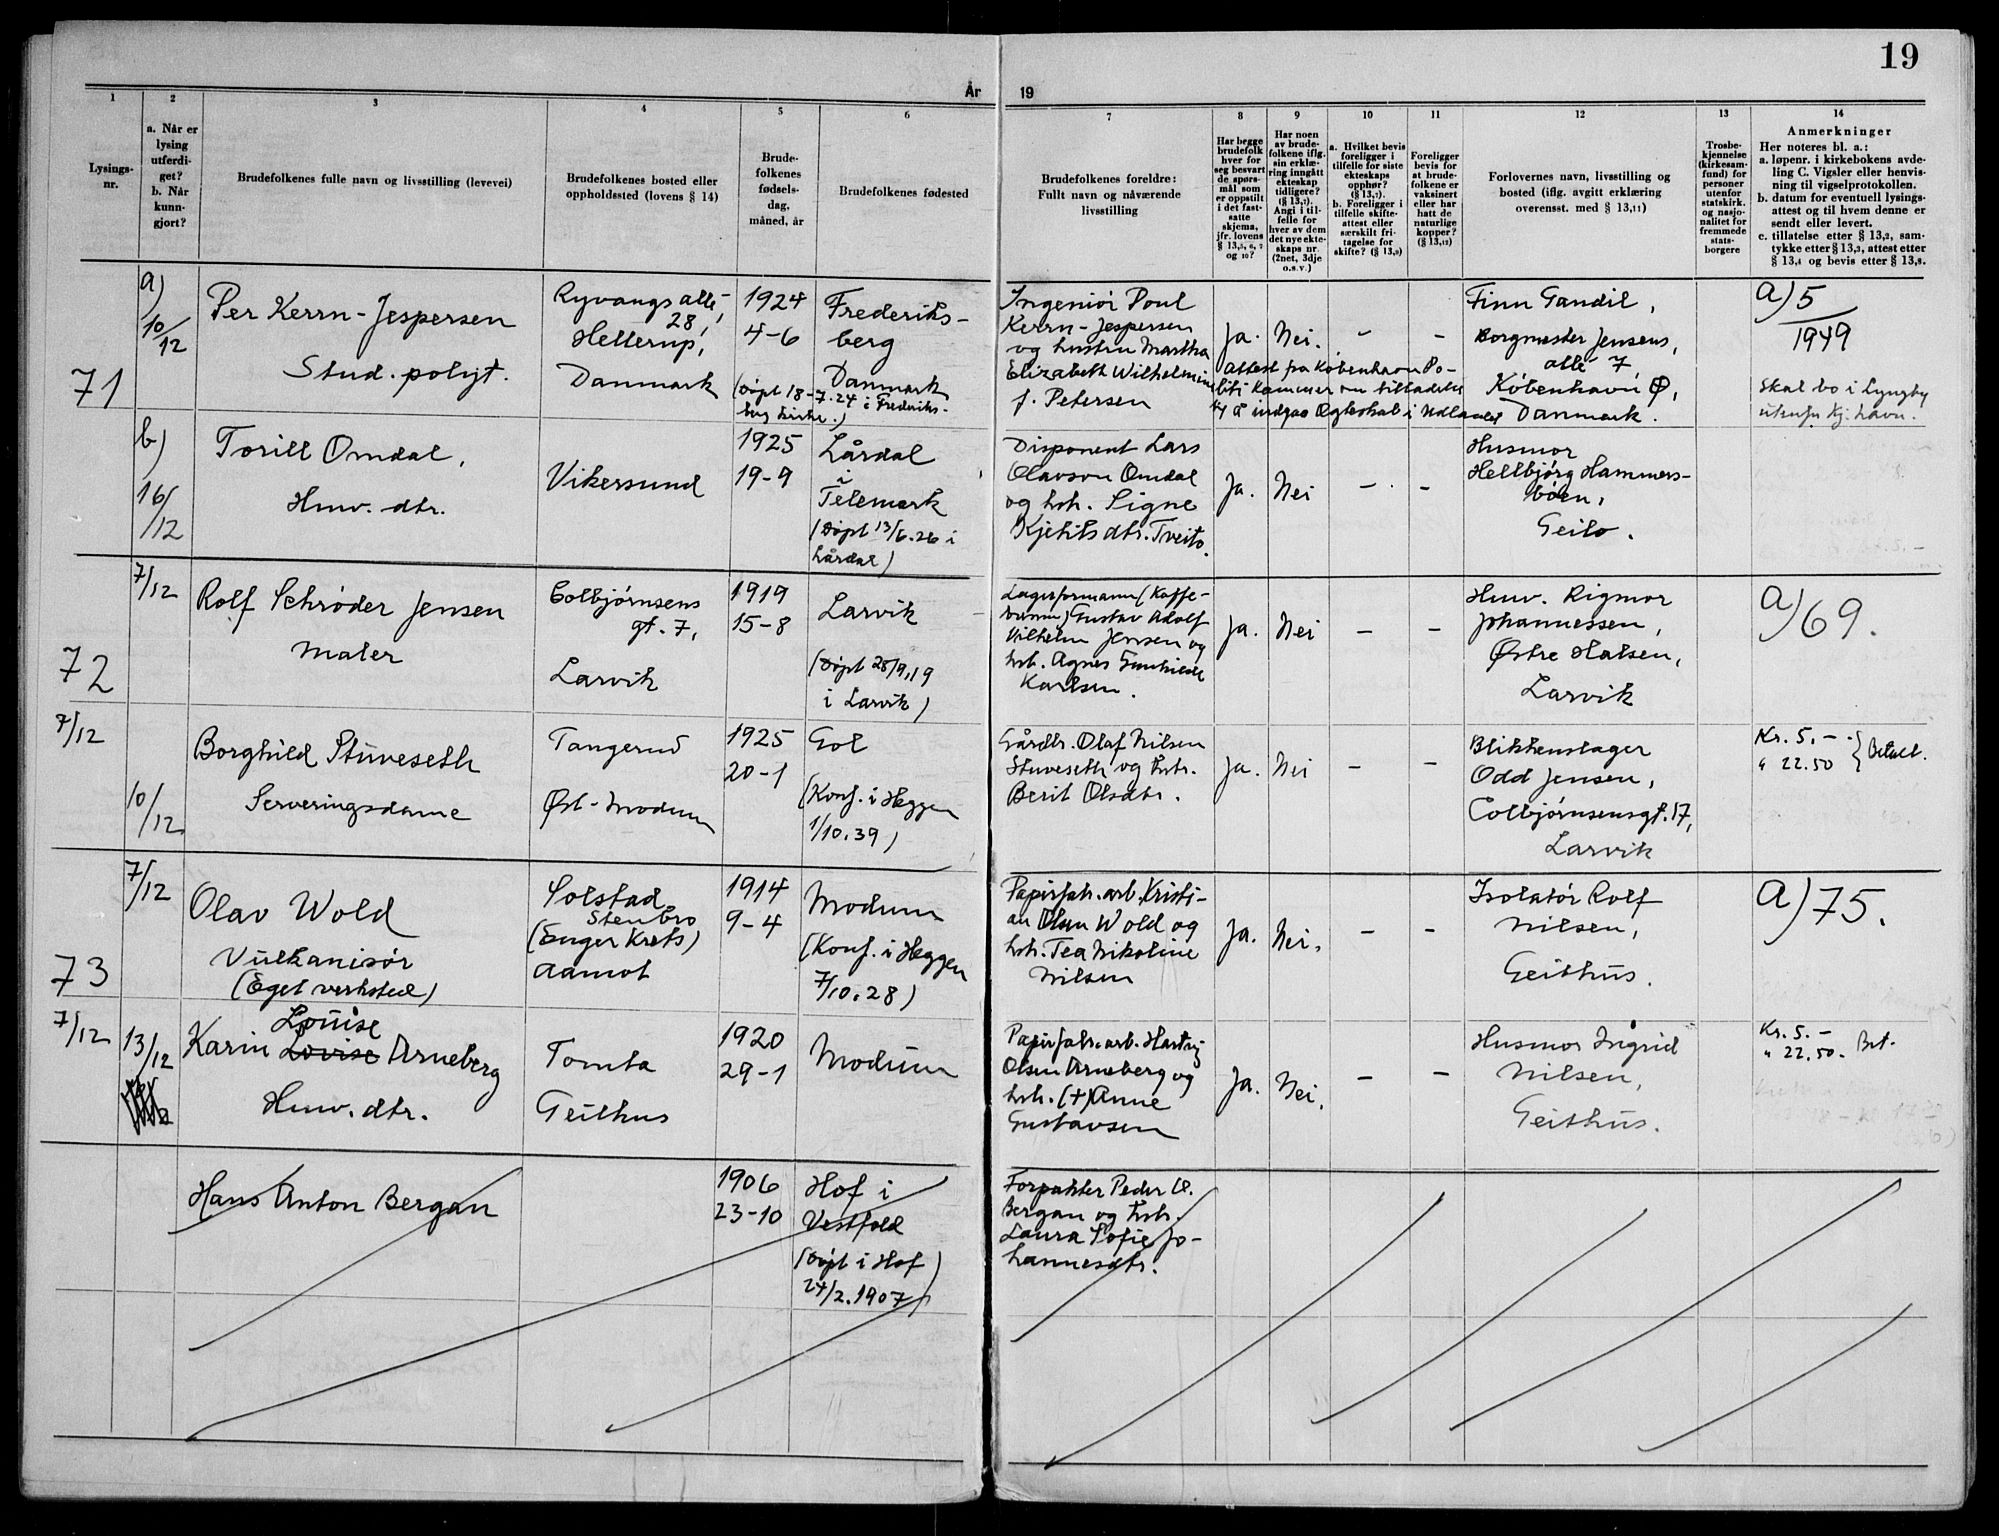 19
År 19
1
Lysings-
nr.
2
a. Når er
lysing
utferdi-
get?
b. Når
kunn-
gjort?
3
Brudefolkenes fulle navn og livsstilling (levevei)
4
Brudefolkenes bosted eller
oppholdssted (lovens § 14)
5
Brude-
folkenes
fødsels-
dag,
måned, år
6
Brudefolkenes fødested
7
Brudefolkenes foreldre:
Fullt navn og nåværende
livsstilling
8
Har begge
brudefolk
hver for
seg besvart
de spørs-
mål som
er oppstilt
i det fast-
satte
skjema,
jfr. lovens
§ 13,5, 6, 7
og 10?
9
Har noen
av brude-
folkene iflg.
sin erklæ-
ring inngått
ekteskap
tidligere?
(§ 13,7).
Angi i til-
felle for
hver av dem
det nye ekte-
skaps nr.
(2net, 3dje
o.s.v.)
10
a. Hvilket bevis
foreligger i
tilfelle for siste
ekteskaps
opphør?
(§ 13,7).
b. Foreligger i
tilfelle skifte-
attest eller
særskilt fri-
tagelse for
skifte? (§ 13,9)
11
Foreligger
bevis for
at brude-
folkene er
vaksinert
eller har
hatt de
naturlige
kopper?
(§ 13,12)
12
Forlovernes navn, livsstilling og
bosted (iflg. avgitt erklæring
overensst. med § 13,11)
13
Trosbe-
kjennelse
(kirkesam-
fund) for
personer
utenfor
statskirk.
og nasjo-
nalitet for
fremmede
stats-
borgere
14
Anmerkninger
Her noteres bl. a.:
a. løpenr. i kirkebokens avde-
ling C. Vigsler eller henvis-
ning til vigselprotokollen.
b. datum for eventuell lysings-
attest og til hvem denne er
sendt eller levert.
c. tillatelse etter § 13,2, sam-
tykke etter § 13,3, attest etter
§ 13,4 og bevis etter § 13,8.
71
a)
10/12
Per Kerrn-Jespersen
Stud. polyt.
Ryvangs allé
28,
Hellerup,
Danmark
1924
4-6
Frederiks-
berg
Danmark
(Døpt 18-7.24 i Frederiks-
berg kirke.)
Ingeniør Poul
Kerrn-Jespersen
og hustru Martha
Elizabeth Wilhelmine
f. Petersen
Ja. Nei. - -
Attest fra København Po-
liti Kammer om tilladelse
til å indgaa Ægteskab i Udlandet
Finn Gandil,
Borgmester Jensens,
allé 7
København Ø,
Danmark.
a) 5
1949
Skal bo i Lyngby
utenfor Kj.havn.
b)
16/12
Torill Omdal,
Husv. dtr.
Vikersund
1925
19-9
Lårdal
i
Telemark
(Døpt 13/6.26 i
Lårdal)
Disponent Lars
Olavson Omdal
og hstr. Signe
Kjetilsdtr. Tveito.
Ja. Nei - -
Husmor
Hellbjørg Hammers-
bøen,
Geilo.
72
7/12
Rolf Schrøder Jensen
Maler
Colbjørnsens
gt. 7,
Larvik
1919
15-8
Larvik
(Døpt 28/9.19
i Larvik)
Lagerformann (Kaffe-
Gustav Adolf
Vilhelm Jensen og
hstr. Agnes Gunhilde
Karlsen.
Ja. Nei - -
Husv. Rigmor
Johannessen,
Østre Halsen,
Larvik
a) 69.
7/12
10/12
Borghild Stuveseth
Serveringsdame
Tangerud
Øst-Modum
1925
20-1
Gol
(Konf. i Heggen
1/10.39)
Gårdbr. Olaf Nilsen
Stuveseth og hstr.
Berit Olsdtr.
Ja. Nei - -
Blikkenslager
Odd Jensen,
Colbjørnsensgt. 17,
Larvik
Kr. 5.-
" 22.50 } Betalt.
73
7/12
Olav Wold
Vulkanisør
(Eget verksted)
Solstad
Stenbro
(Enger Krets)
Aamot
1914
9-4
Modum
(Konf. i Heggen
7/10.28)
Papirfabr.arb. Kristi-
an Olsen Wold og
hstr. Tea Nikoline
Nilsen
Ja. Nei. - -
Isolatør Rolf
Nilsen,
Geithus.
a) 75.
7/12
13/12
Louise
Karin Lovise Arneberg
Husv. dtr.
Tomta
Geithus
1920
29-1
Modum
Papirfabr.arb. Hartvig
Olsen Arneberg og
hstr. (+) Anne
Gustavsen
Ja. Nei. - -
Husmor Ingrid
Nilsen,
Geithus.
Kr. 5.-
" 22.50. Bet.
Hans Anton Bergan
1906
23-10
Hof i
Vestfold
(Døpt i Hof)
24/2.1907)
Forpakter Peder
Bergan og hstr.
Laura Sofie Jo-
hannesdtr.